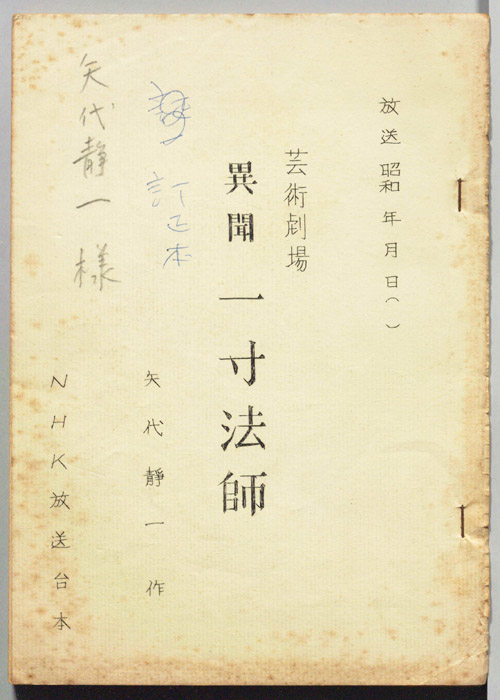 放送 昭和 年 月 日( )
芸術劇場
異聞 一寸法師
訂正本
矢代静一 作
矢代静一 様
NHK放送台本